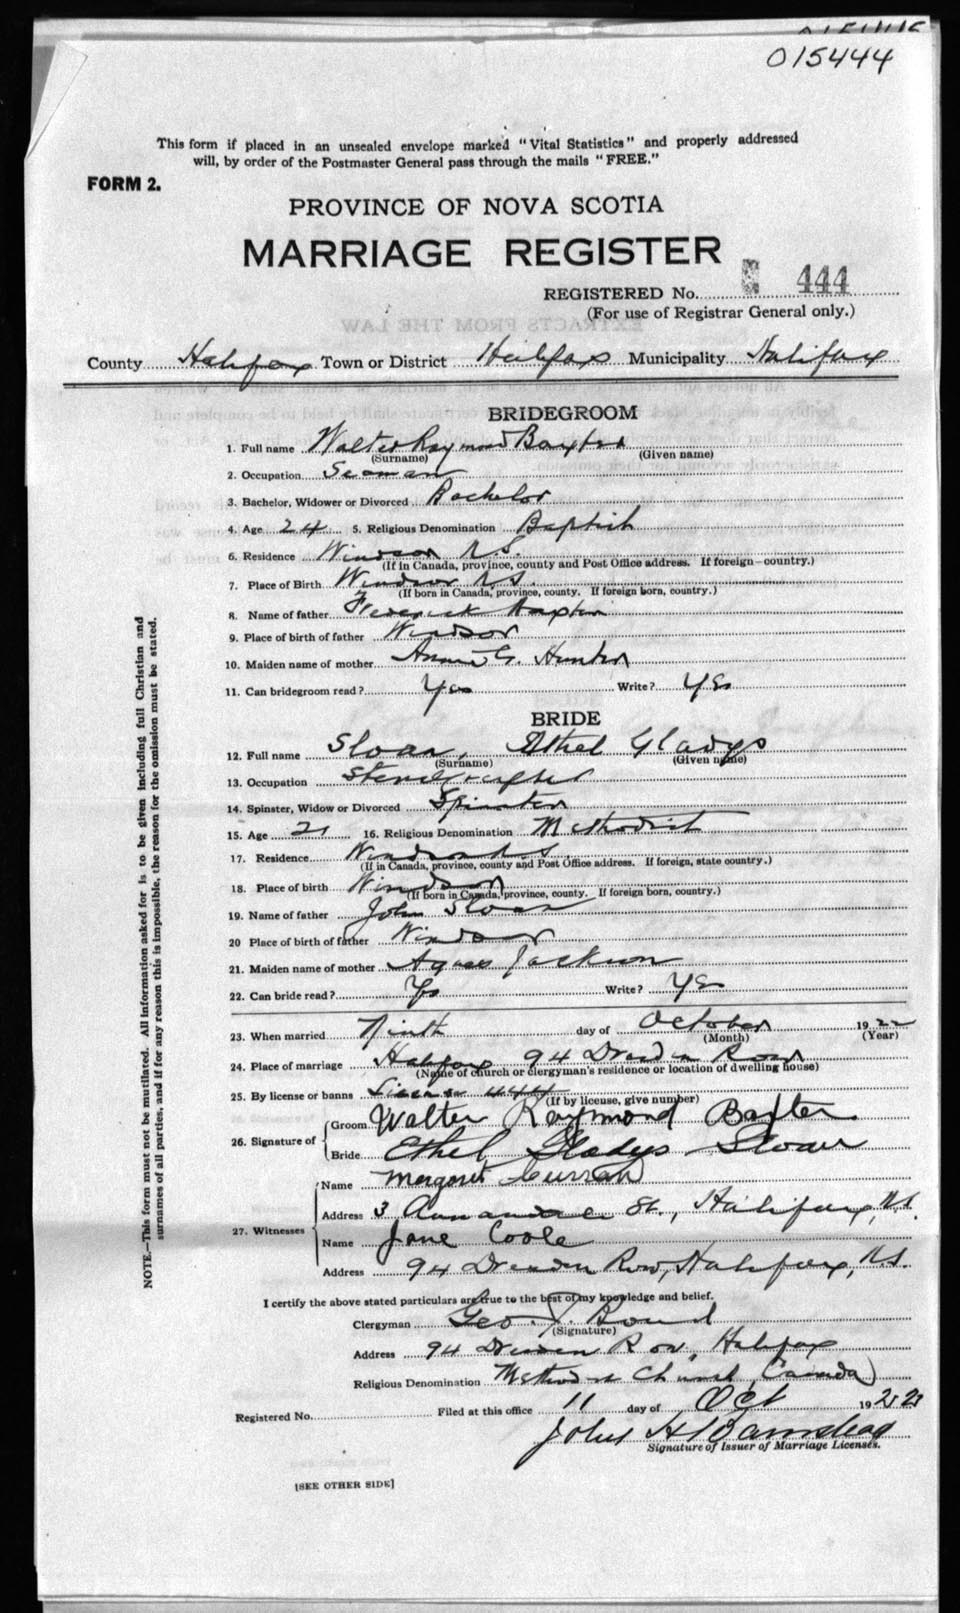 015444
This form if placed in an unsealed envelope marked "Vital Statistics" and properly addressed
will, by order of the Postmaster General pass through the mails "FREE."
FORM 2.
PROVINCE OF NOVA SCOTIA
MARRIAGE REGISTER
REGISTERED No. 444
(For use of Registrar General only.)
County Halifax Town or District Halifax Municipality Halifax
BRIDEGROOM
1. Full name Walter Raymond Baxter
(Surname) (Given name)
2. Occupation Seaman
3. Bachelor, Widower or Divorced Bachelor
4. Age 24 5. Religious Denomination Baptist
6. Residence Windsor N.S.
(If in Canada, province, county and Post Office address. If foreign—country.)
7. Place of Birth Windsor N.S.
(If born in Canada, province, county. If foreign born, country.)
8. Name of father Frederick Baxter
9. Place of birth of father Windsor
10. Maiden name of mother Annie G. Hunter
11. Can bridegroom read? Yes Write? Yes
BRIDE
12. Full name Sloan, Ethel Gladys
(Surname) (Given name)
13. Occupation Stenographer
14. Spinster, Widow or Divorced Spinster
15. Age 21 16. Religious Denomination Methodist
17. Residence Windsor N.S.
(If in Canada, province, county and Post Office address. If foreign, state country.)
18. Place of birth Windsor
(If born in Canada, province, county. If foreign born, country.)
19. Name of father John Sloan
20 Place of birth of father Windsor
21. Maiden name of mother Agnes Jackson
22. Can bride read? Yes Write? Yes
23. When married Ninth day of October 1922
(Month) (Year)
24. Place of marriage Halifax 94 Dresden Row
(Name of church or clergyman's residence or location of dwelling house)
25. By license or banns License 444
(If by license, give number)
26. Signature of Groom Walter Raymond Baxter
Bride Ethel Gladys Sloan
27. Witnesses Name Margaret Curran
Address 3 Annandale St., Halifax, N.S.
Name Jane Coole
Address 94 Dresden Row, Halifax, N.S.
I certify the above stated particulars are true to the best of my knowledge and belief.
Clergyman Geo. J. Bond
(Signature)
Address 94 Dresden Row, Halifax
Religious Denomination Methodist Church, Canada
Registered No. Filed at this office 11 day of Oct 1922
John H Barnstead
Signature of Issuer of Marriage Licenses.
[SEE OTHER SIDE]
NOTE.—This form must not be mutilated. All information asked for is to be given including full Christian and
surnames of all parties, and if for any reason this is impossible, the reason for the omission must be stated.